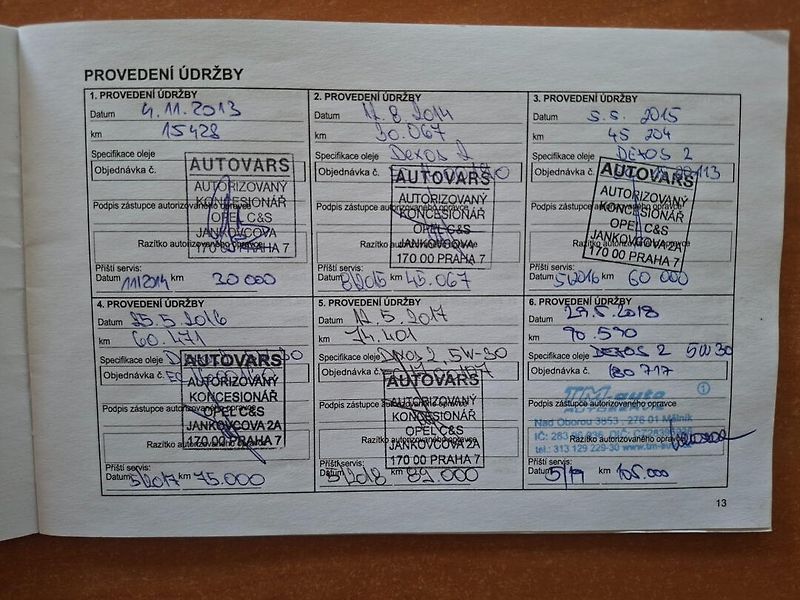 PROVEDENÍ ÚDRŽBY
1. PROVEDENÍ ÚDRŽBY
Datum 4.11.2013
km 15428
Specifikace oleje
Objednávka č.
AUTOVARS
AUTORIZOVANÝ
Podpis zástupce autorizovaného opravce
KONCESIONÁŘ
OPEL C&S
JANKOVCOVA
Razítko autorizovaného opravce
170 00 PRAHA 7
Příští servis:
Datum 11/2014 km 30 000
2. PROVEDENÍ ÚDRŽBY
Datum 12.8.2014
km 30.067
Specifikace oleje Dexos 2
Objednávka č.
AUTOVARS
AUTORIZOVANÝ
Podpis zástupce autorizovaného opravce
KONCESIONÁŘ
OPEL C&S
JANKOVCOVA
Razítko autorizovaného opravce
170 00 PRAHA 7
Příští servis:
Datum 8/2015 km 45.067
3. PROVEDENÍ ÚDRŽBY
Datum 5.5. 2015
km 45 204
Specifikace oleje DEXOS 2
Objednávka č.
AUTOVARS
AUTORIZOVANÝ
Podpis zástupce autorizovaného opravce
KONCESIONÁŘ
OPEL C&S
JANKOVCOVA 2A
Razítko autorizovaného opravce
170 00 PRAHA 7
Příští servis:
Datum 5/2016 km 60 000
4. PROVEDENÍ ÚDRŽBY
Datum 25.5.2016
km 60.471
Specifikace oleje
Objednávka č.
AUTOVARS
AUTORIZOVANÝ
KONCESIONÁŘ
Podpis zástupce autorizovaného opravce
OPEL C&S
JANKOVCOVA 2A
Razítko autorizovaného opravce
170 00 PRAHA 7
Příští servis:
Datum 5/2017 km 75.000
5. PROVEDENÍ ÚDRŽBY
Datum 12.5.2017
km 74.401
Specifikace oleje Dexos 2, 5W-30
Objednávka č.
AUTOVARS
AUTORIZOVANÝ
Podpis zástupce autorizovaného opravce
KONCESIONÁŘ
OPEL C&S
Razítko autorizovaného opravce
JANKOVCOVA 2A
170 00 PRAHA 7
Příští servis:
Datum 5/2018 km 89.000
6. PROVEDENÍ ÚDRŽBY
Datum 29.5.2018
km 90.590
Specifikace oleje DEXOS 2 5W30
Objednávka č. 180717
TM auto
Podpis zástupce autorizovaného opravce
Nad Oborou 3853 - 276 01 Mělník
Razítko autorizovaného opravce
tel.: 313 129 229-30
Příští servis:
Datum 5/19 km 105.000
13